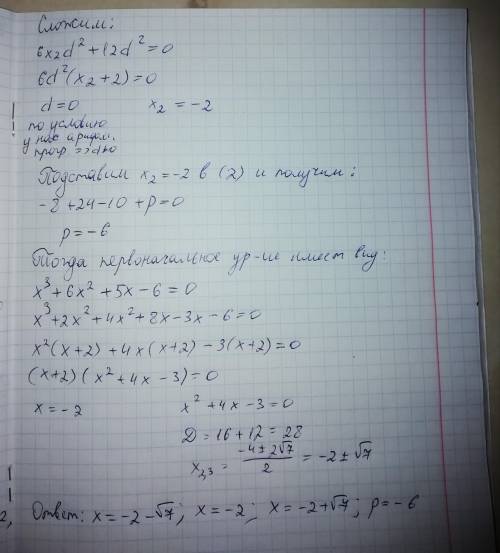 Сложим:
6x₂d² + 12d² = 0
6d²(x₂ + 2) = 0
d = 0 x₂ = -2
по условию
у нас арифм.
прогр => d≠0
Подставим x₂ = -2 в (2) и получим:
-8 + 24 - 10 + p = 0
p = -6
Тогда первоначальное ур-ие имеет вид:
x³ + 6x² + 5x - 6 = 0
x³ + 2x² + 4x² + 8x - 3x - 6 = 0
x²(x+2) + 4x(x+2) - 3(x+2) = 0
(x+2)(x² + 4x - 3) = 0
x = -2 x² + 4x - 3 = 0
D = 16 + 12 = 28
x₂,₃ = (-4 ± 2√7)/2 = -2 ± √7
Ответ: x = -2 - √7; x = -2; x = -2 + √7; p = -6